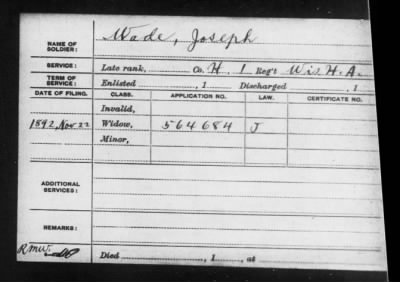 NAME OF SOLDIER: Wade, Joseph
SERVICE: Late rank, Co. H, 1 Reg't Wis. H. A.
TERM OF SERVICE: Enlisted , 1 Discharged , 1
DATE OF FILING. CLASS. APPLICATION NO. LAW. CERTIFICATE NO.
Invalid,
1892, Nov. 22 Widow, 564684 J
Minor,
ADDITIONAL SERVICES:
REMARKS:
R.M.W.
Died , 1 , at